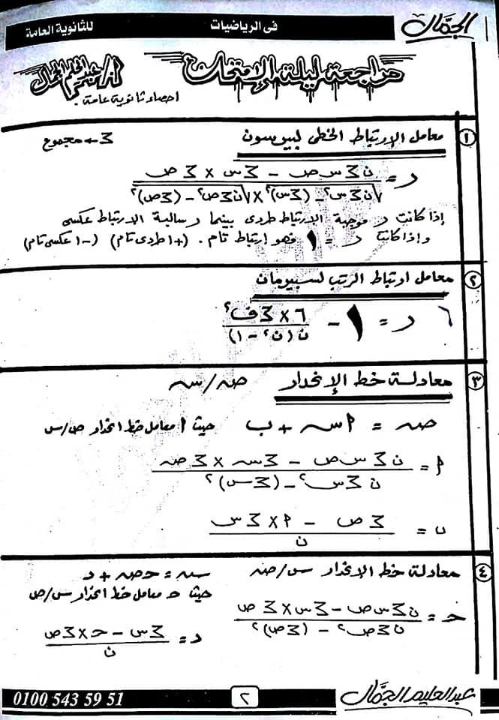 الجمّال
فى الرياضيات
للثانوية العامة
مراجعة ليلة الإمتحان
احصاء ثانوية عامة
① معامل الإرتباط الخطى لبيرسون
Σ → مجموع
ر = (ن Σ س ص − Σ س × Σ ص) / (√(ن Σ س² − (Σ س)²) × √(ن Σ ص² − (Σ ص)²))
إذا كانت ر موجبة الارتباط طردى بينما ر سالبة الارتباط عكسى
وإذا كانت ر = 1 فهو إرتباط تام . (+1 طردى تام) (−1 عكسى تام)
② معامل ارتباط الرتب لسبيرمان
ر = 1 − (٦ × Σ ف²) / (ن (ن² − 1))
③ معادلة خط الإنحدار ص/س
ص = أ س + ب حيث أ معامل خط انحدار ص/س
أ = (ن Σ س ص − Σ س × Σ ص) / (ن Σ س² − (Σ س)²)
ب = (Σ ص − أ × Σ س) / ن
④ معادلة خط الانحدار س/ص س = حـ ص + د
حيث حـ معامل خط انحدار س/ص
حـ = (ن Σ س ص − Σ س × Σ ص) / (ن Σ ص² − (Σ ص)²)
د = (Σ س − حـ × Σ ص) / ن
عبدالعليم الجمّال
٢
0100 543 59 51